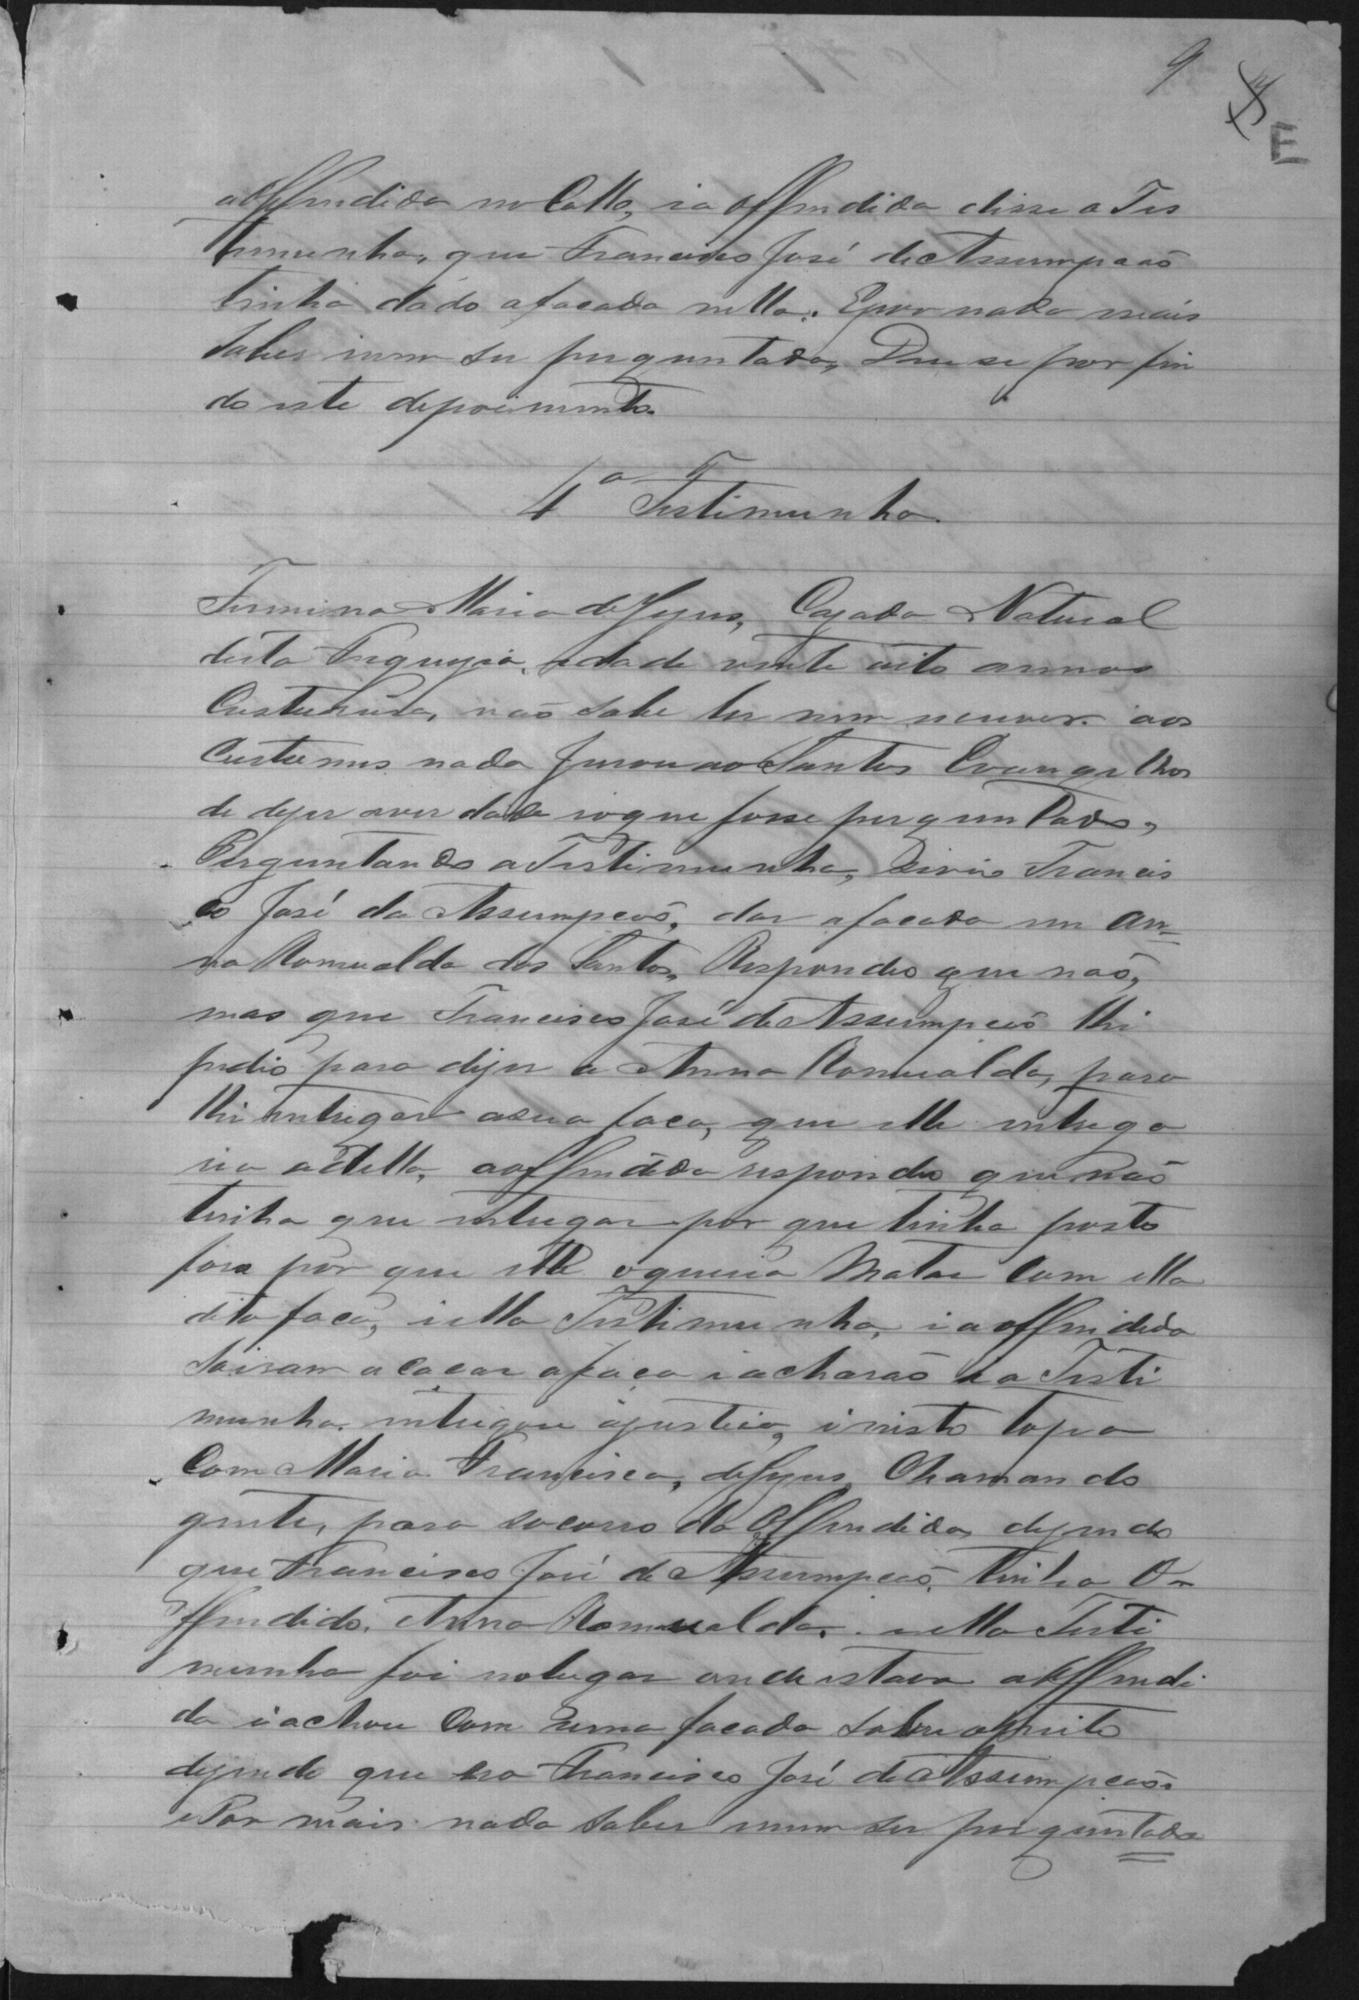 9
E
a offendida no Collo, i a offendida disse a Tes
timunha, que Francisco José de Assumpçaõ
tinha dado a facada nella. E por nada mais
saber inem ser preguntada, Deu se por fin
do este depoimento.
4ª Testimunha.
Firmina Maria de Jezus, Cazada Natural
desta Freguyia, idade vinte oito annos
Custureira, naõ sabe ler nem screver. aos
Custumes nada Jurou aos Santos Evangelhos
de dizer averdade ioque fosse preguntado,
Perguntando a Testimunha, si vio Francis
co José da Assumpçaõ, dar a facada em An=
na Romualda dos Santos, Respondeo que naõ,
mas que Francisco José de Assumpçaõ lhi
pedio para dizer a Anna Romualda, para
lhi entregar a sua faca, que elle entrega
ria a della, a offendida respondeo que naõ
tinha que entregar por que tinha posto
fora por que elle o queria Matar Com ella
dita faca, i ella Testimunha, i a offendida
sairam a caçar a faca i acharaõ i a Testi
munha. intregou a justicia, i nisto topa
Com Maria Francisca, de Jezus, Chamando
gente, para socorro da Offendida, dizendo
que Francisco José de Assumpçaõ, tinha O=
ffendido, Anna Romualda. i ella Testi
munha foi no lugar onde estava a Offendi
da i achou Com uma facada sobre o peito
dizendo que era Francisco José de Assumpçaõ.
e Por mais nada saber inem ser preguntada